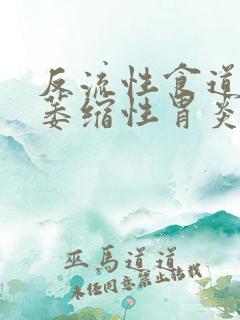 反流性食道
萎缩性胃炎
巫马道道
未经同意禁止转载